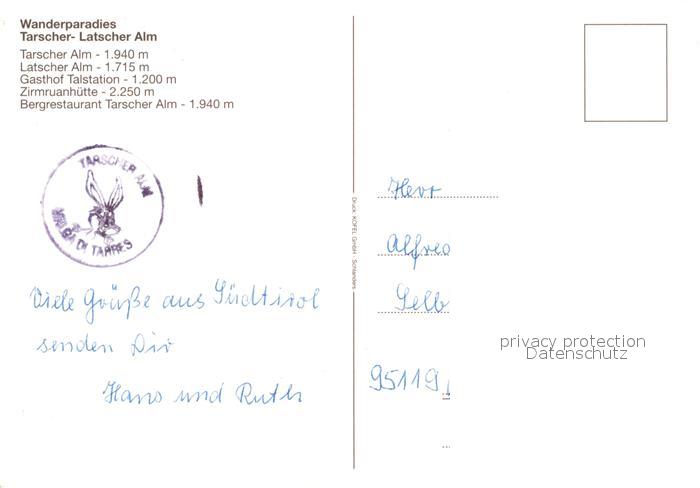 Wanderparadies
Tarscher- Latscher Alm
Tarscher Alm - 1.940 m
Latscher Alm - 1.715 m
Gasthof Talstation - 1.200 m
Zirmruanhütte - 2.250 m
Bergrestaurant Tarscher Alm - 1.940 m
TARSCHER ALM
MALGA DI TARRES
Viele Grüße aus Südtirol
senden Dir
Hans und Ruth
Druck: KÖFEL GmbH - Schlanders
Herr
Alfred
Selb
95119
privacy protection
Datenschutz